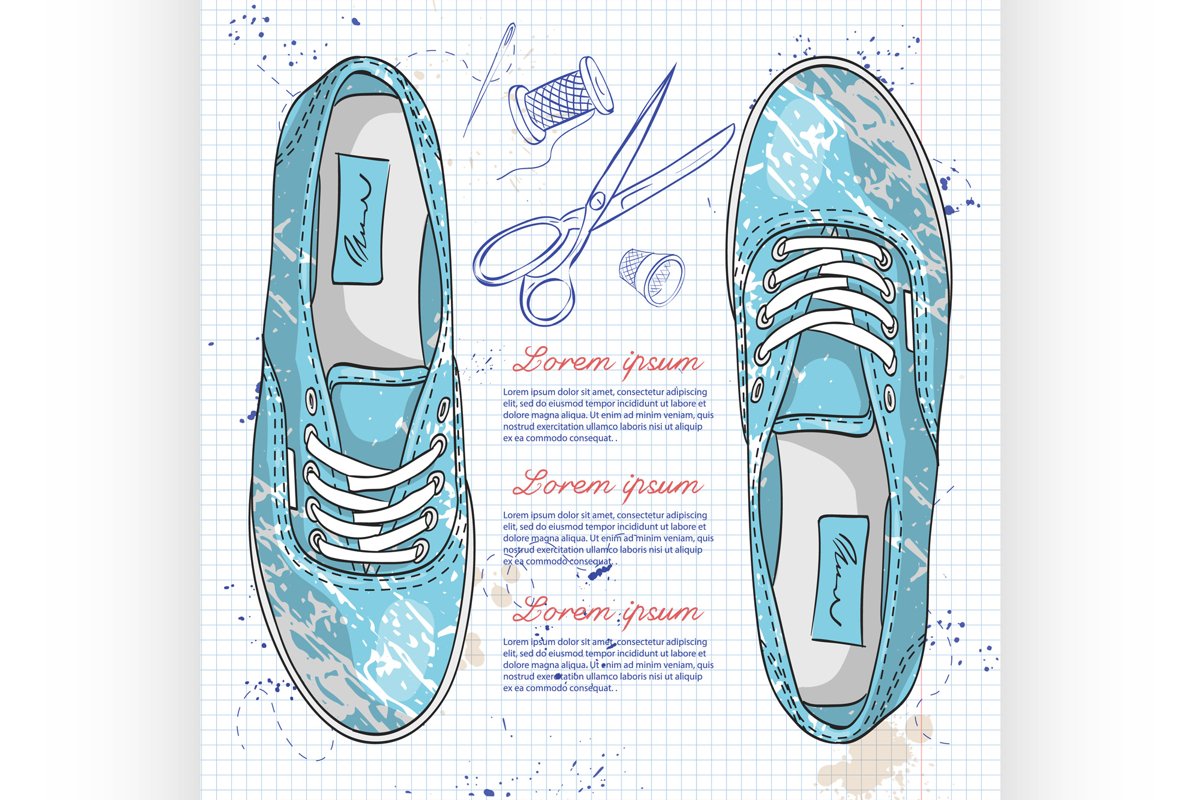 Lorem ipsum
Lorem ipsum dolor sit amet, consectetur adipiscing
elit, sed do eiusmod tempor incididunt ut labore et
dolore magna aliqua. Ut enim ad minim veniam, quis
nostrud exercitation ullamco laboris nisi ut aliquip
ex ea commodo consequat. .
Lorem ipsum
Lorem ipsum dolor sit amet, consectetur adipiscing
elit, sed do eiusmod tempor incididunt ut labore et
dolore magna aliqua. Ut enim ad minim veniam, quis
nostrud exercitation ullamco laboris nisi ut aliquip
ex ea commodo consequat. .
Lorem ipsum
Lorem ipsum dolor sit amet, consectetur adipiscing
elit, sed do eiusmod tempor incididunt ut labore et
dolore magna aliqua. Ut enim ad minim veniam, quis
nostrud exercitation ullamco laboris nisi ut aliquip
ex ea commodo consequat. .